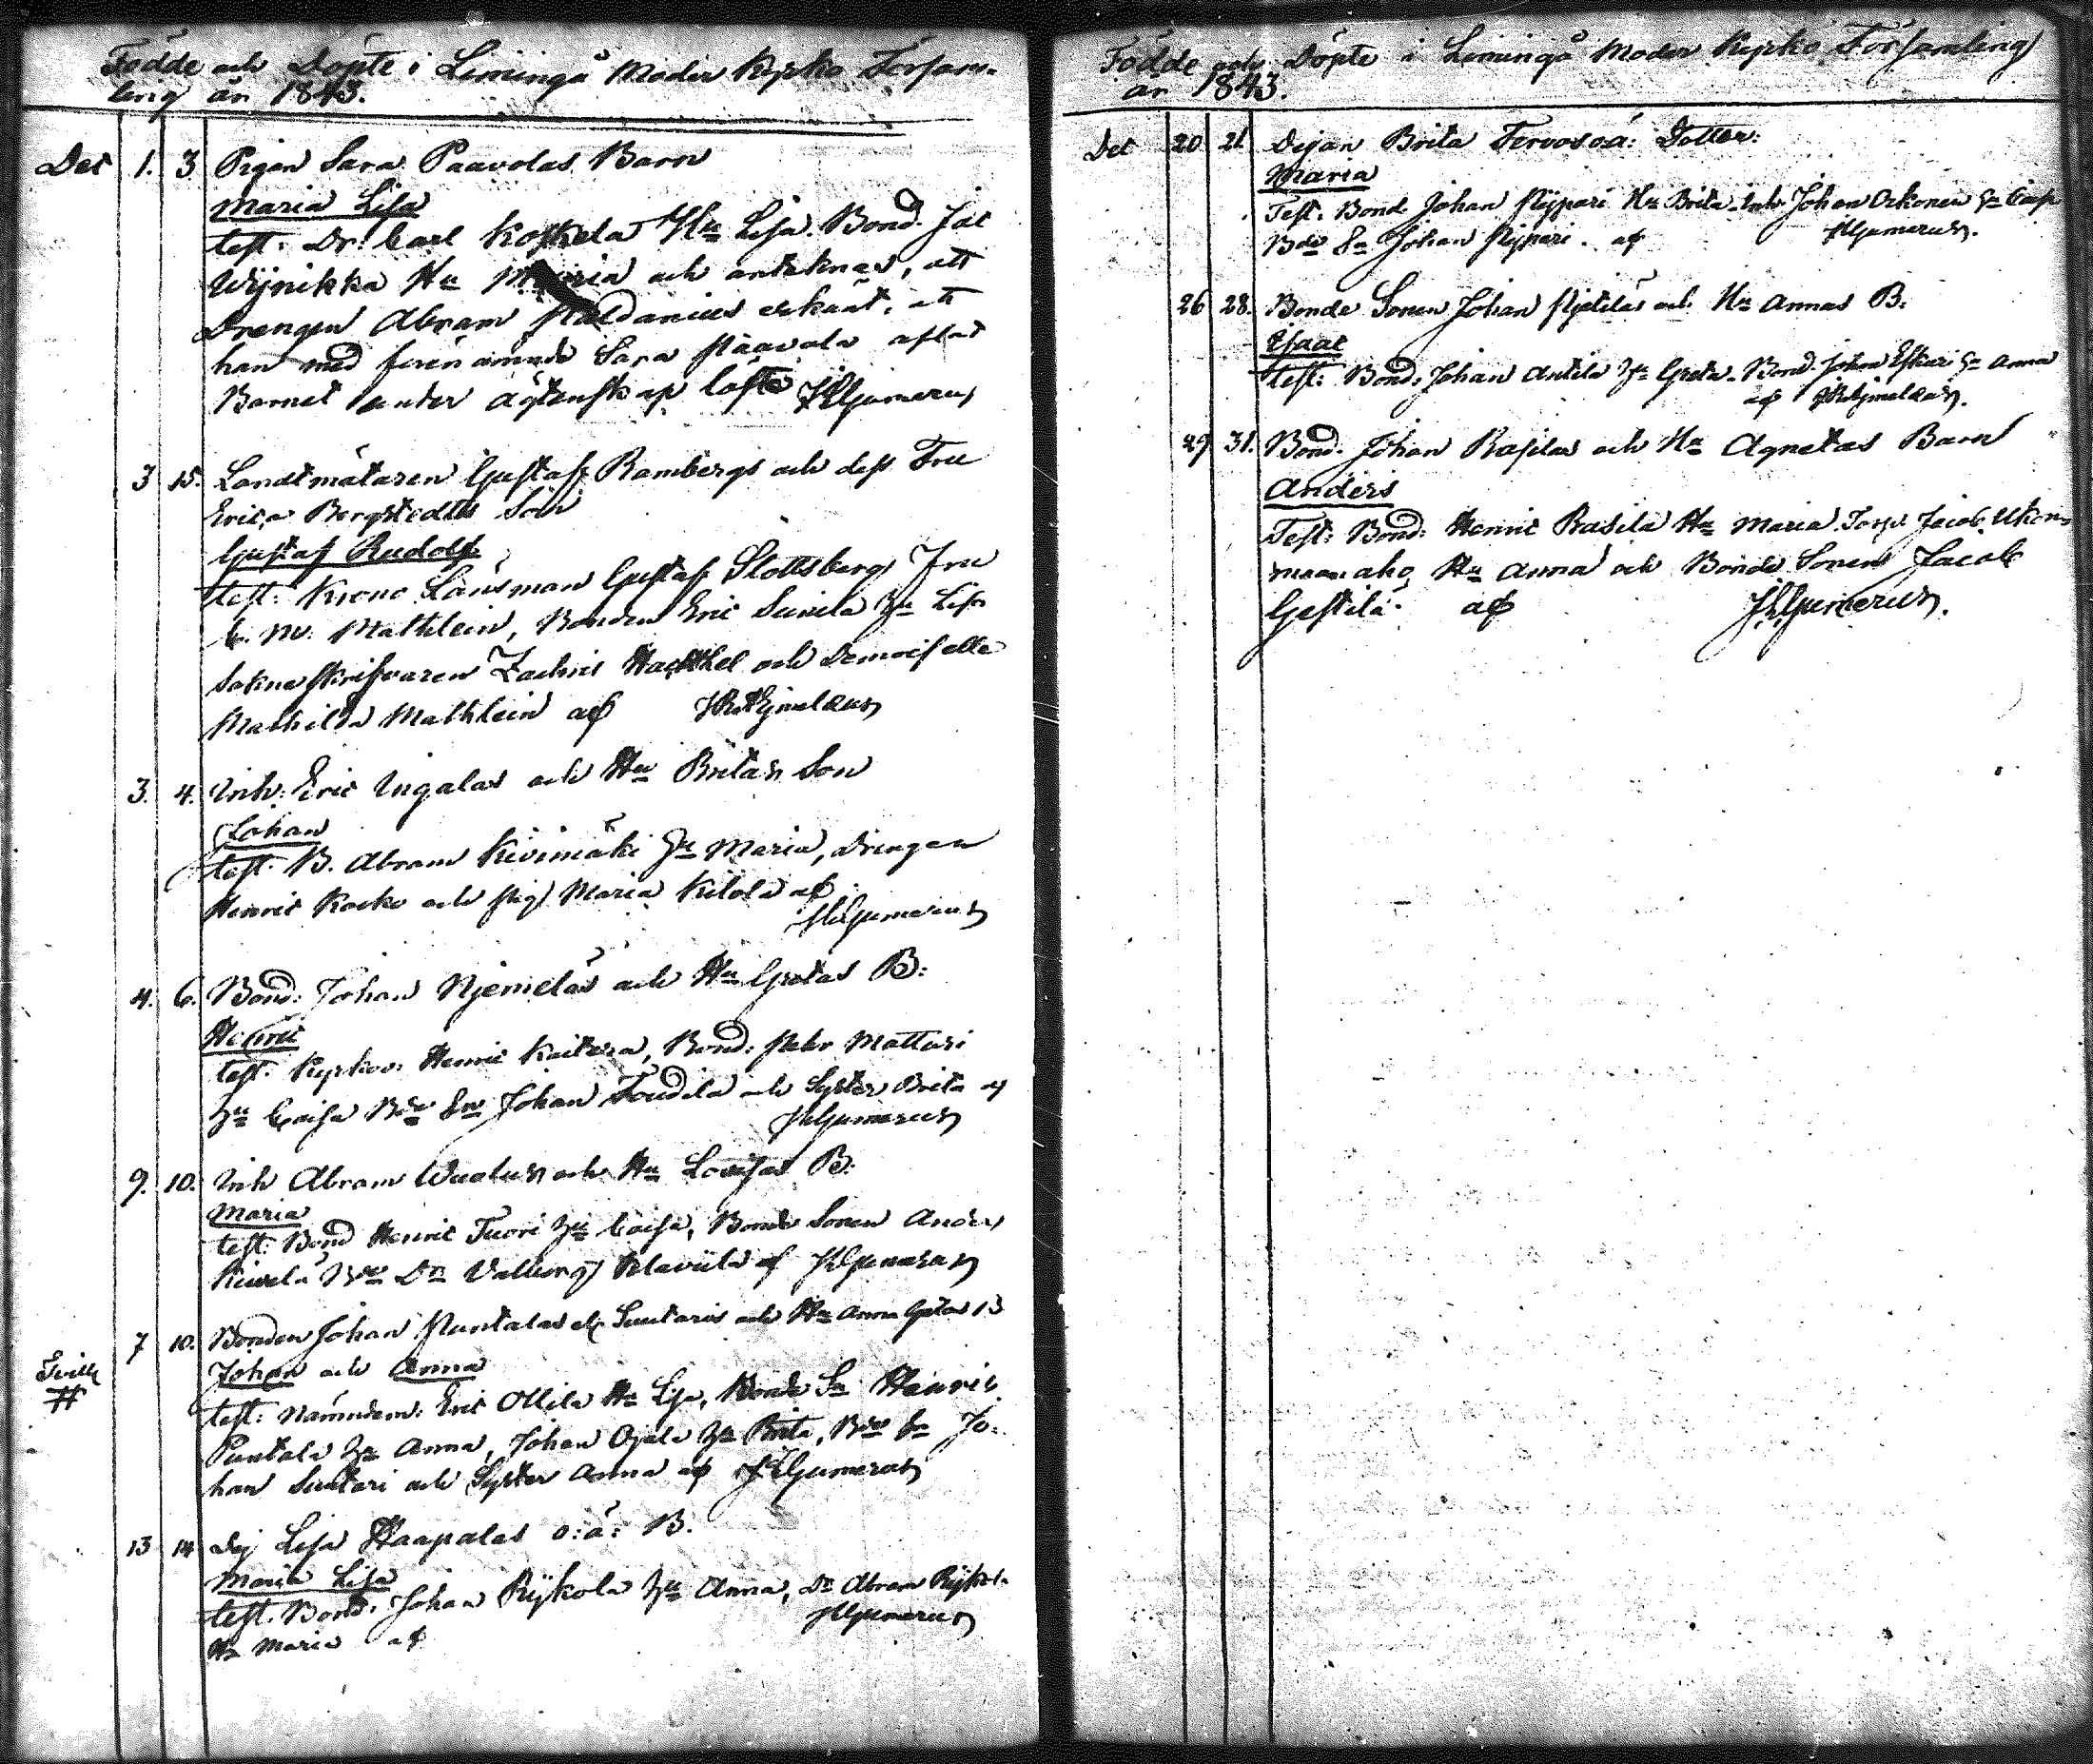 Födde och Döpte i Limingå Moder Kyrko Försam-
ling år 1843.
Dec 1. 3 Pigan Sara Paavolas Barn
Maria Lisa
test: Dr: Carl Koskela Hu Lisa. Bond. Jac
Wijnikka Hu Maria och anteknas, att
Drengen Abram erkänt, att
han med förenämnde Sara Paavola aflat
Barnet under ägtenskaps löfte JEGumerus
3 15. Landtmätaren Gustaf Rambergs och dess Fru
Erica Bergstedts Son
Gustaf Rudolf
test: Krono Länsman Gustaf Slottsberg, Fru
C. M. Mathlein, Bonden Eric Suvela Hu Lisa
Sokneskrifvaren Zachris och Demoiselle
Mathilda Mathlein af
3. 4. Inh: Eric Ingalas och Hu Britas Son
Johan
test. B. Abram Kivimäki Hu Maria, Drengen
Henric Kocko och Pig Maria Kilola af
JEGumerus
4. 6. Bond: Johan Njemeläs och Hu Gretas B:
Henric
test. Kyrkov: Henric Kaitera, Bond: Pehr Mattari
Hu Caisa Bde Sn Johan Toudila och Syster Brita af
JEGumerus
9. 10. Inh Abram och Hu Lovisas B:
Maria
test: Bond Henric Tuori Hu Caisa, Bonde Sonen Anders
Kiwelä Bde Dr Valborg Klaviila af JEGumerus
Tvill
#
7 10. Bonden Johan Puntalas el. Suutaris och Hu Anna Gretas B
Johan och Anna
test: Nämndem: Eric Ollila Hu Lisa, Bonde Sn Henric
Puntala Hu Anna, Johan Ojala Hu Brita, Bde Sn Jo-
han Suutari och Syster Anna af JEGumerus
13 14 Dej Lisa Haapalas o: ä: B.
Maria Lisa
test. Bond. Johan Rijkola Hu Anna, Dr Abram
Hu Maria af JEGumerus
Födde och Döpte i Limingå Moder Kyrko Församling
år 1843.
Dec 20 21 Dejan Brita Tervos oä: Dotter:
Maria
Test: Bond Johan Pijpari Hu Brita. Inh Johan Hu Caisa
Bde Sn Johan Pijpari. af JEGumerus.
26 28. Bonde Sonen Johan och Hu Annas B:
Esaac
test: Bond. Johan Antila Hu Greta. Bond. Johan Eskari Hu Anna
af
29 31. Bond. Johan Rasilas och Hu Agnetas Barn
Anders
Test: Bond: Henric Rasila Hu Maria. Torp: Jacob Ukon-
maanaho Hu Anna och Bonde Sonen Jacob
Gestilä. af JEGumerus.